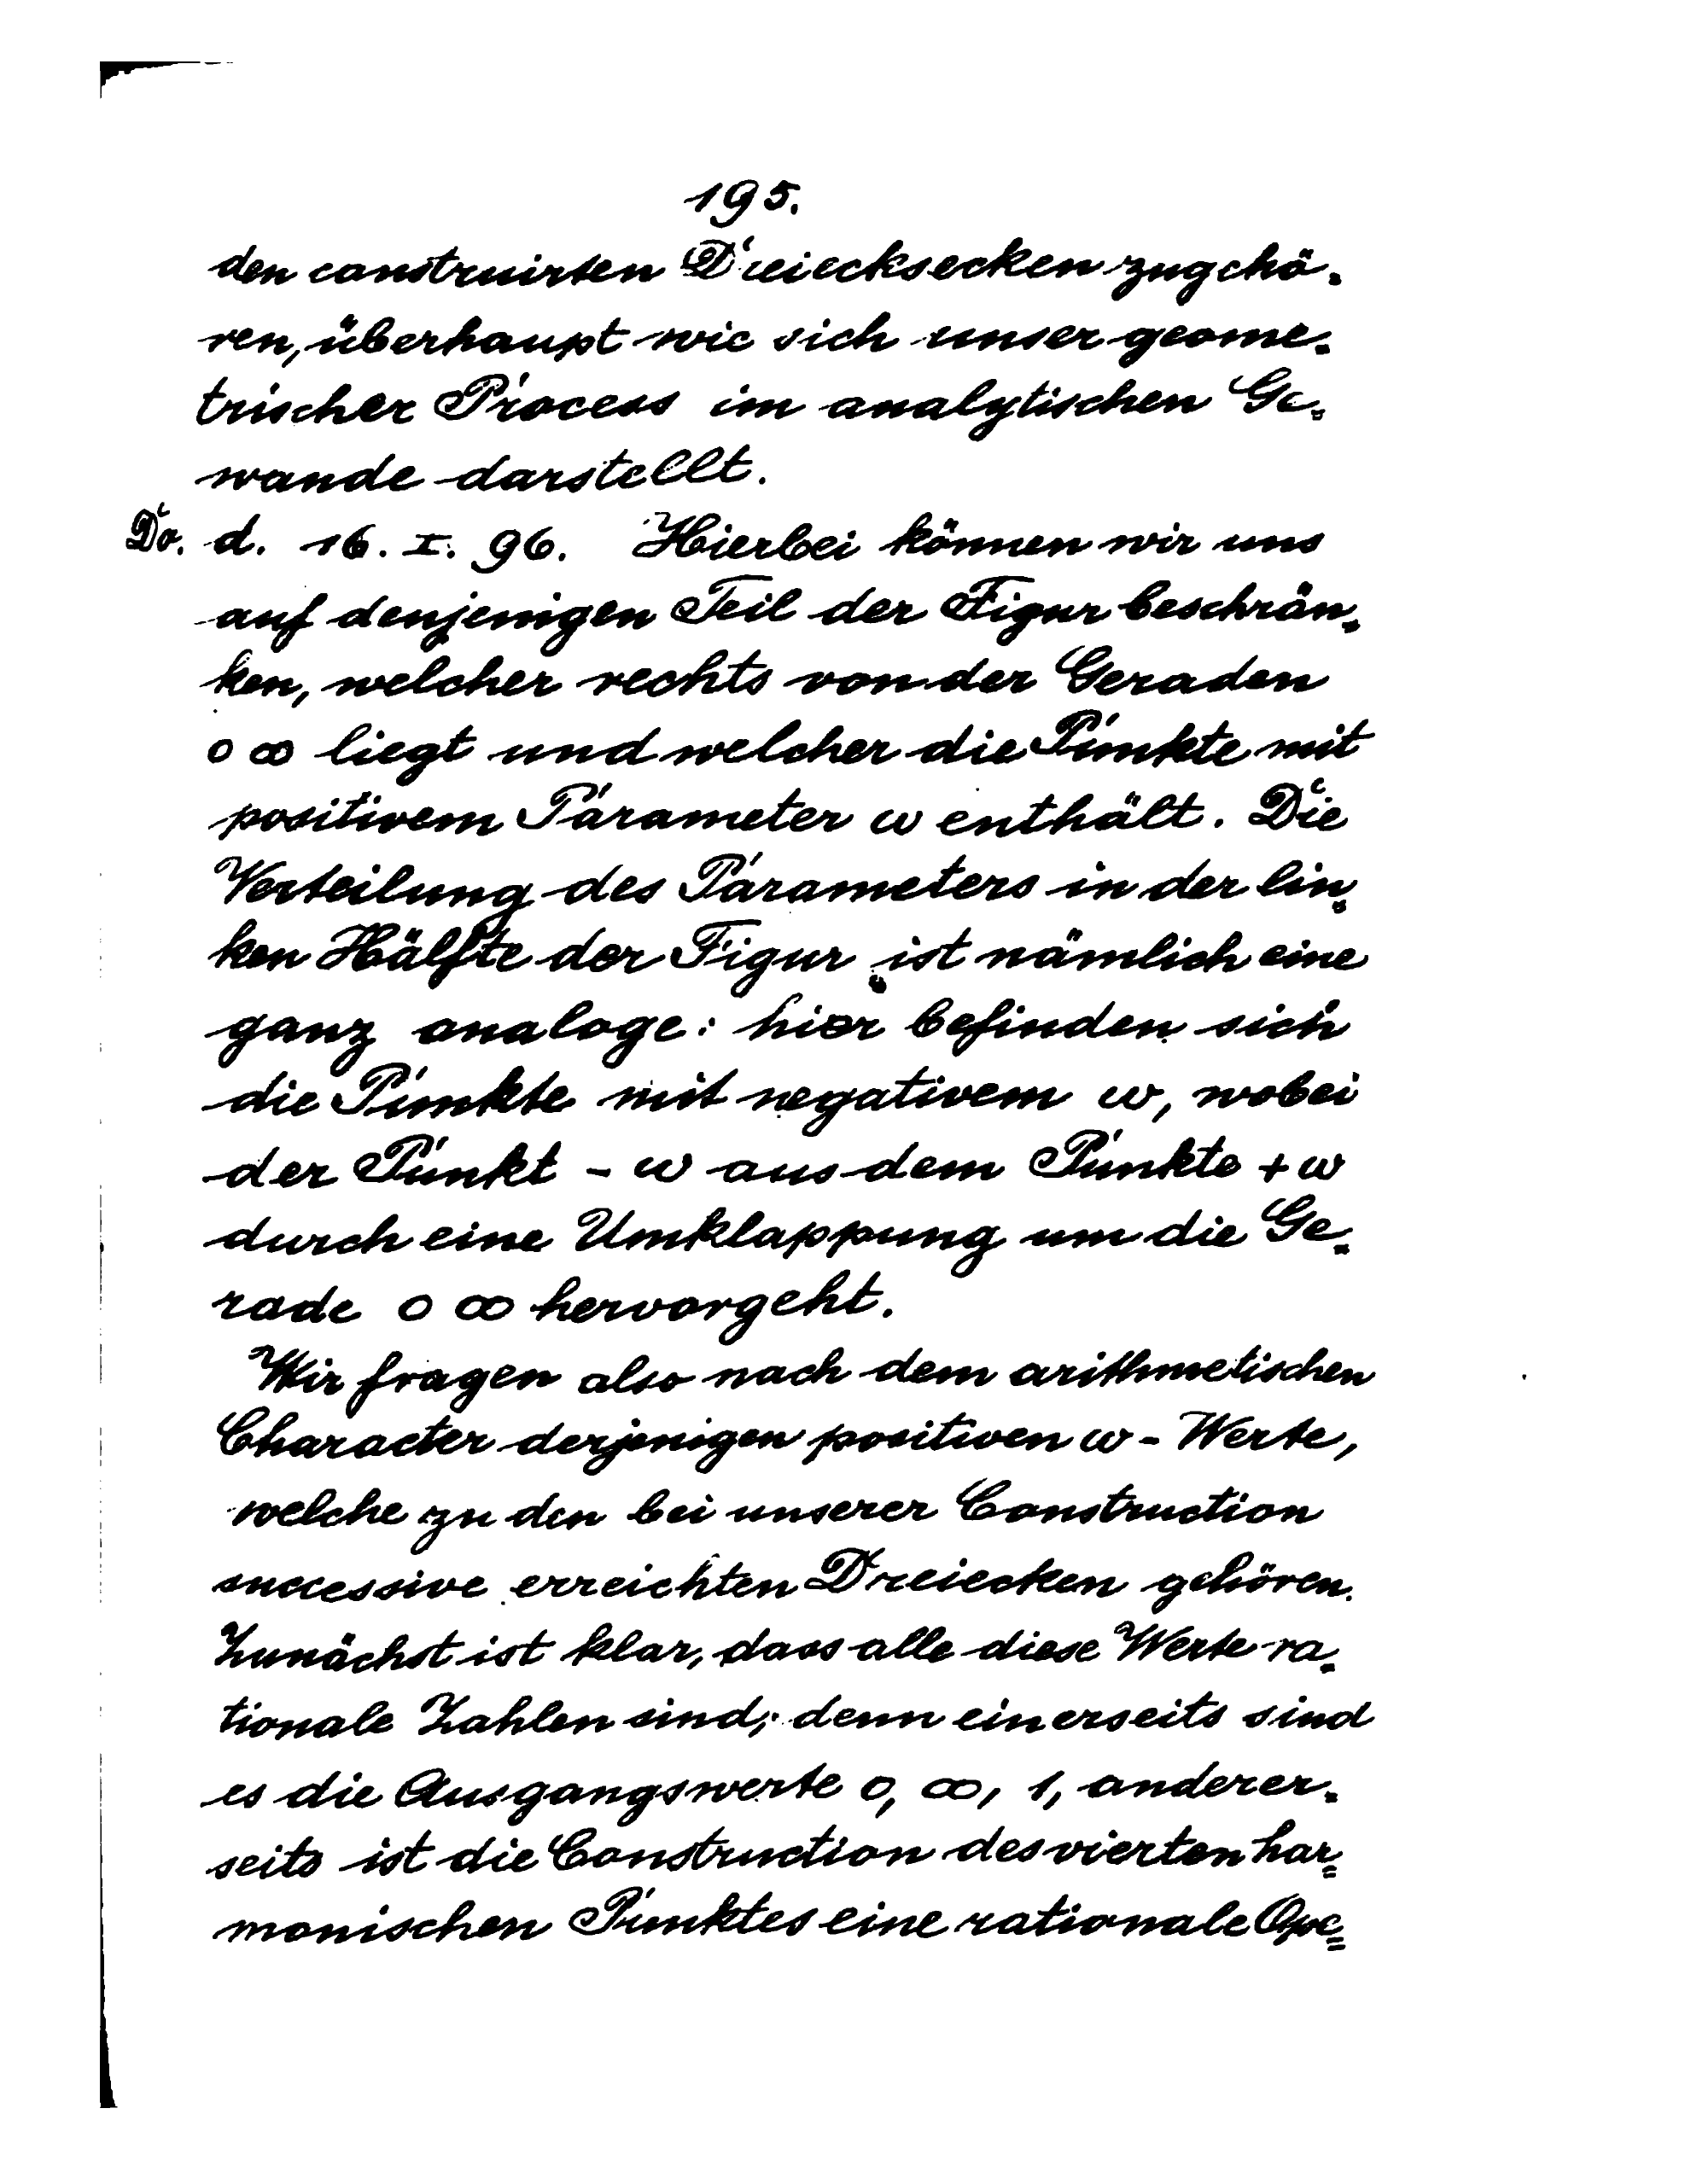 195.
den construirten Dreiecksecken zugehö-
ren, überhaupt wie sich unser geome-
trischer Process im analytischen Ge-
wande darstellt.
Do. d. 16. I. 96. Hierbei können wir uns
auf denjenigen Teil der Figur beschrän-
ken, welcher rechts von der Geraden
0 ∞ liegt und welcher die Punkte mit
positivem Parameter ω enthält. Die
Verteilung des Parameters in der lin-
ken Hälfte der Figur ist nämlich eine
ganz analoge: hier befinden sich
die Punkte mit negativem ω, wobei
der Punkt - ω aus dem Punkte + ω
durch eine Umklappung um die Ge-
rade 0 ∞ hervorgeht.
Wir fragen also nach dem arithmetischen
Character derjenigen positiven ω - Werte,
welche zu den bei unserer Construction
successive erreichten Dreiecken gehören.
Zunächst ist klar, dass alle diese Werte ra-
tionale Zahlen sind; denn einerseits sind
es die Ausgangswerte 0, ∞, 1, anderer-
seits ist die Construction des vierten har=
monischen Punktes eine rationale Ope=